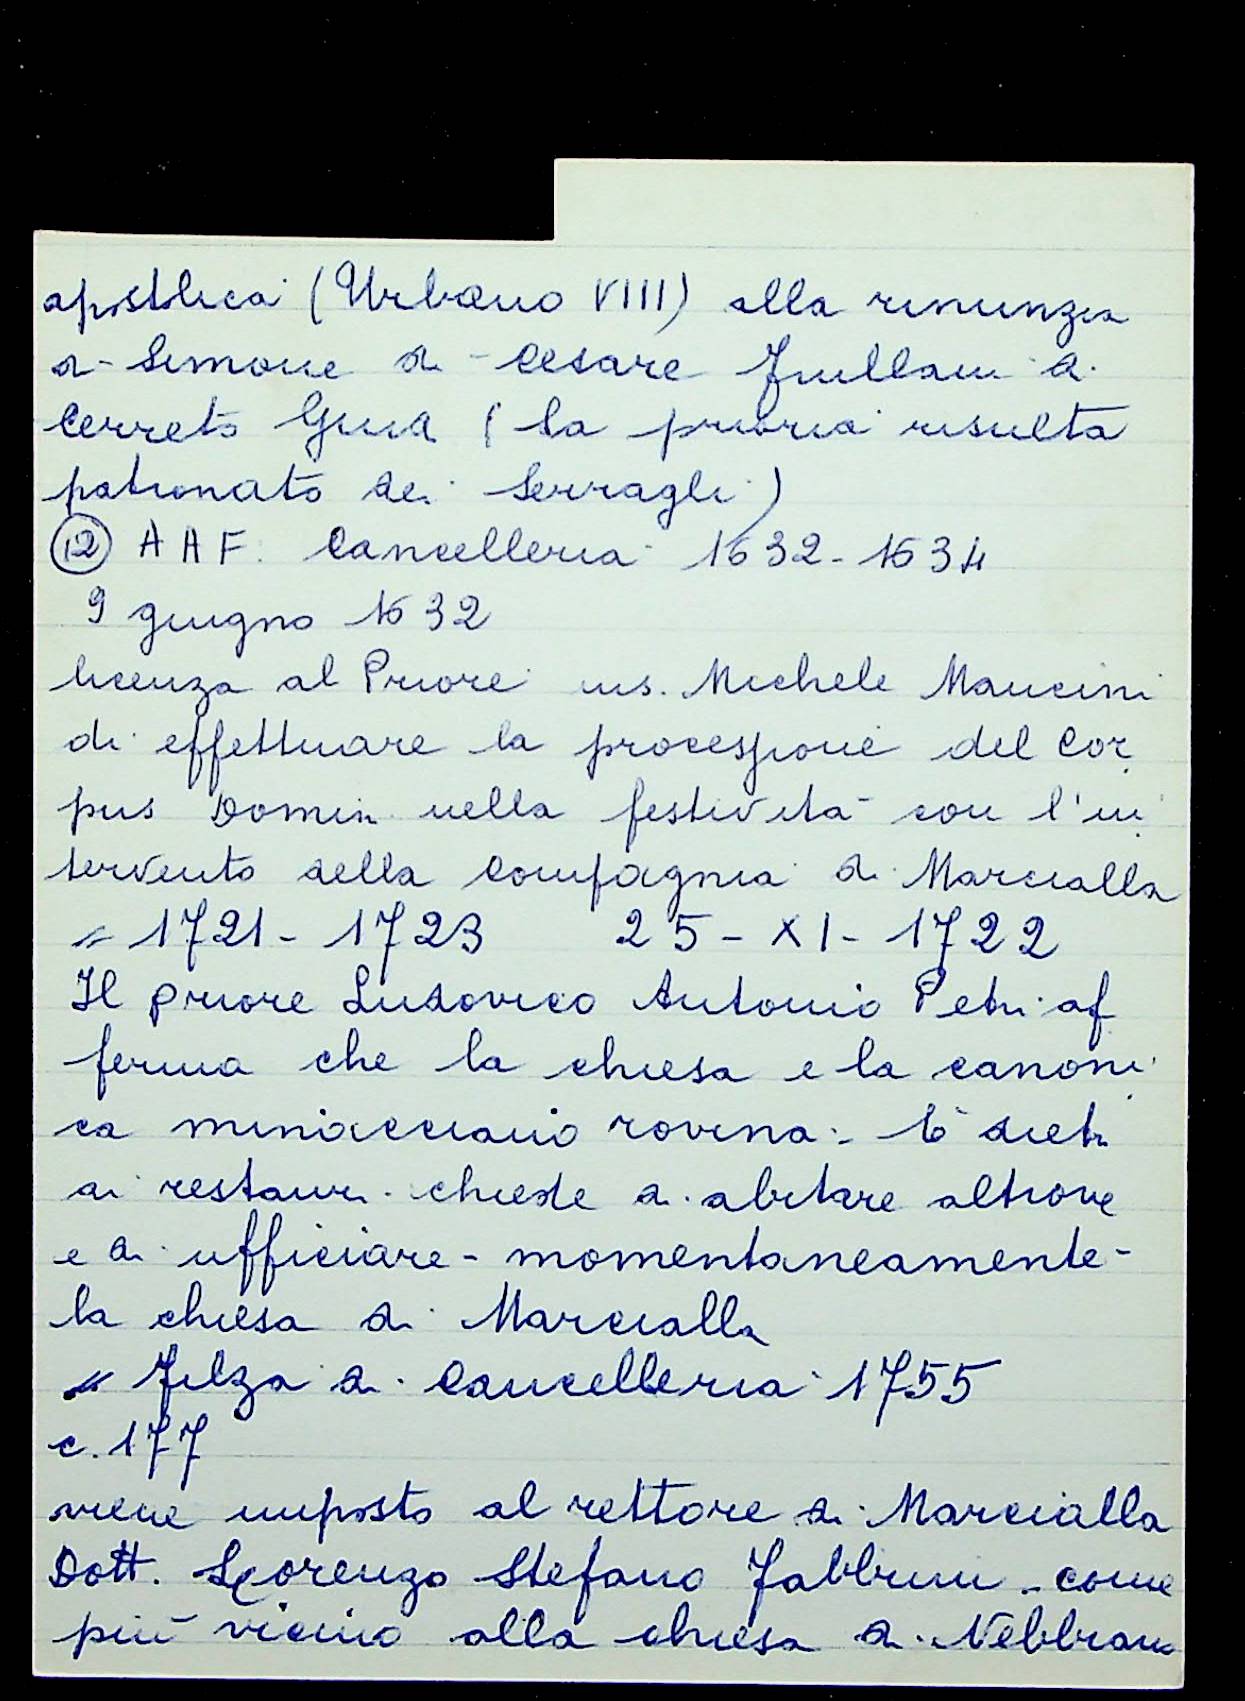 apostolica (Urbano VIII) alla rinunzia
di Simone di Cesare Giullani di
Cerreto Guidi (la prioria risulta
patronato dei Serragli)
12 AAF. Cancelleria 1632-1634
9 giugno 1632
licenza al Priore ms. Michele Mancini
di effettuare la processione del Cor
pus Domini nella festività con l'in
tervento della Compagnia di Marcialla
" 1721-1723 25-XI-1722
Il priore Ludovico Antonio Petri af
ferma che la chiesa e la canoni
ca minacciano rovina.
ai restauri chiede di abitare altrove
e di ufficiare - momentaneamente -
la chiesa di Marcialla
" Filza di Cancelleria 1755
c. 177
viene imposto al rettore di Marcialla
Dott. Lorenzo Stefano Fabbrini - come
più vicino alla chiesa di Nebbiano